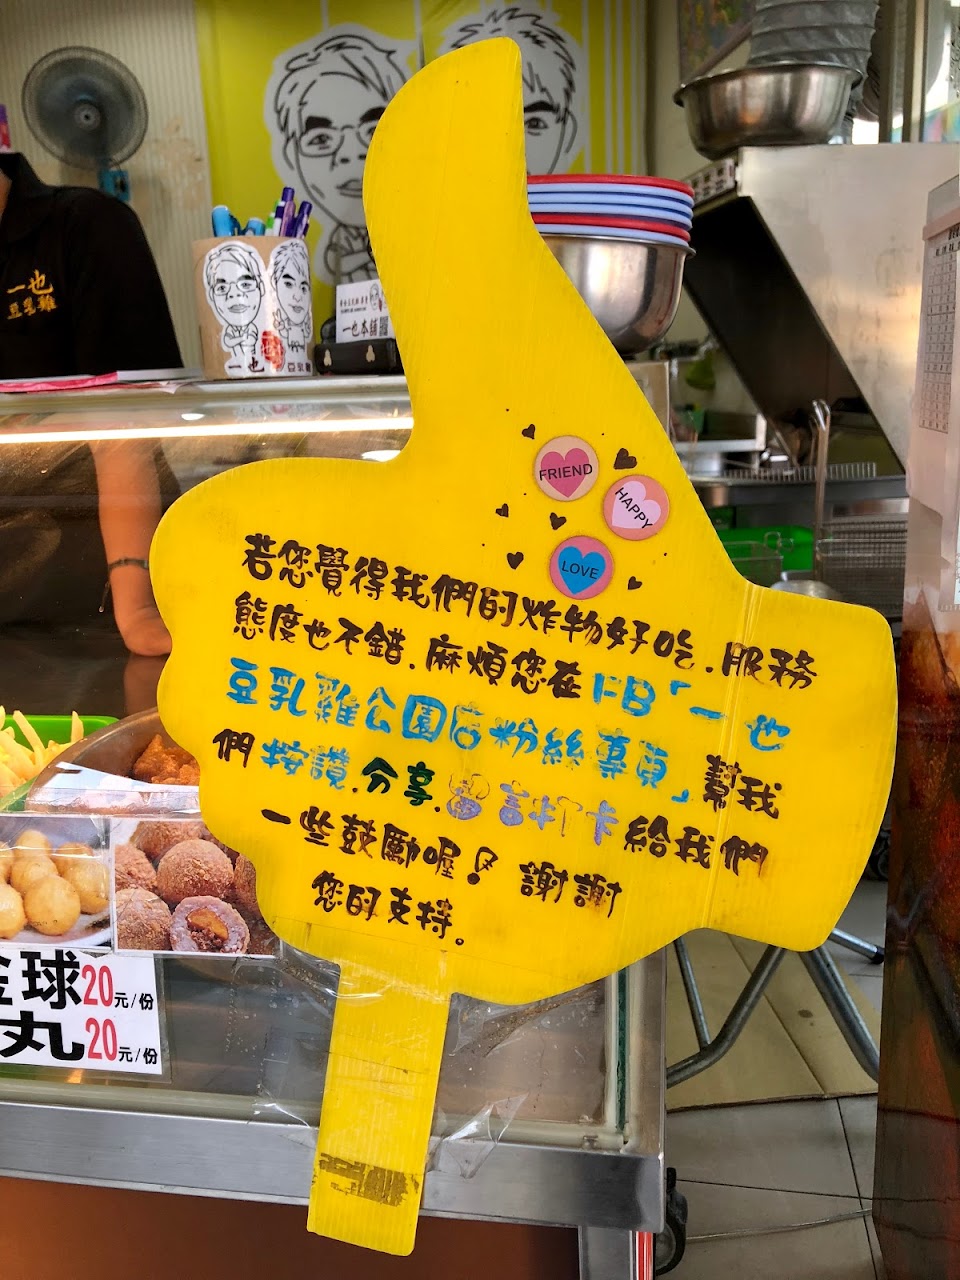 一也
豆乳雞
一也
一也本舖
FRIEND
HAPPY
LOVE
若您覺得我們的炸物好吃.服務
態度也不錯.麻煩您在FB「一也
豆乳雞公園店粉絲專頁」幫我
們按讚.分享.留言打卡給我們
一些鼓勵喔!謝謝
您的支持。
球20元/份
丸20元/份